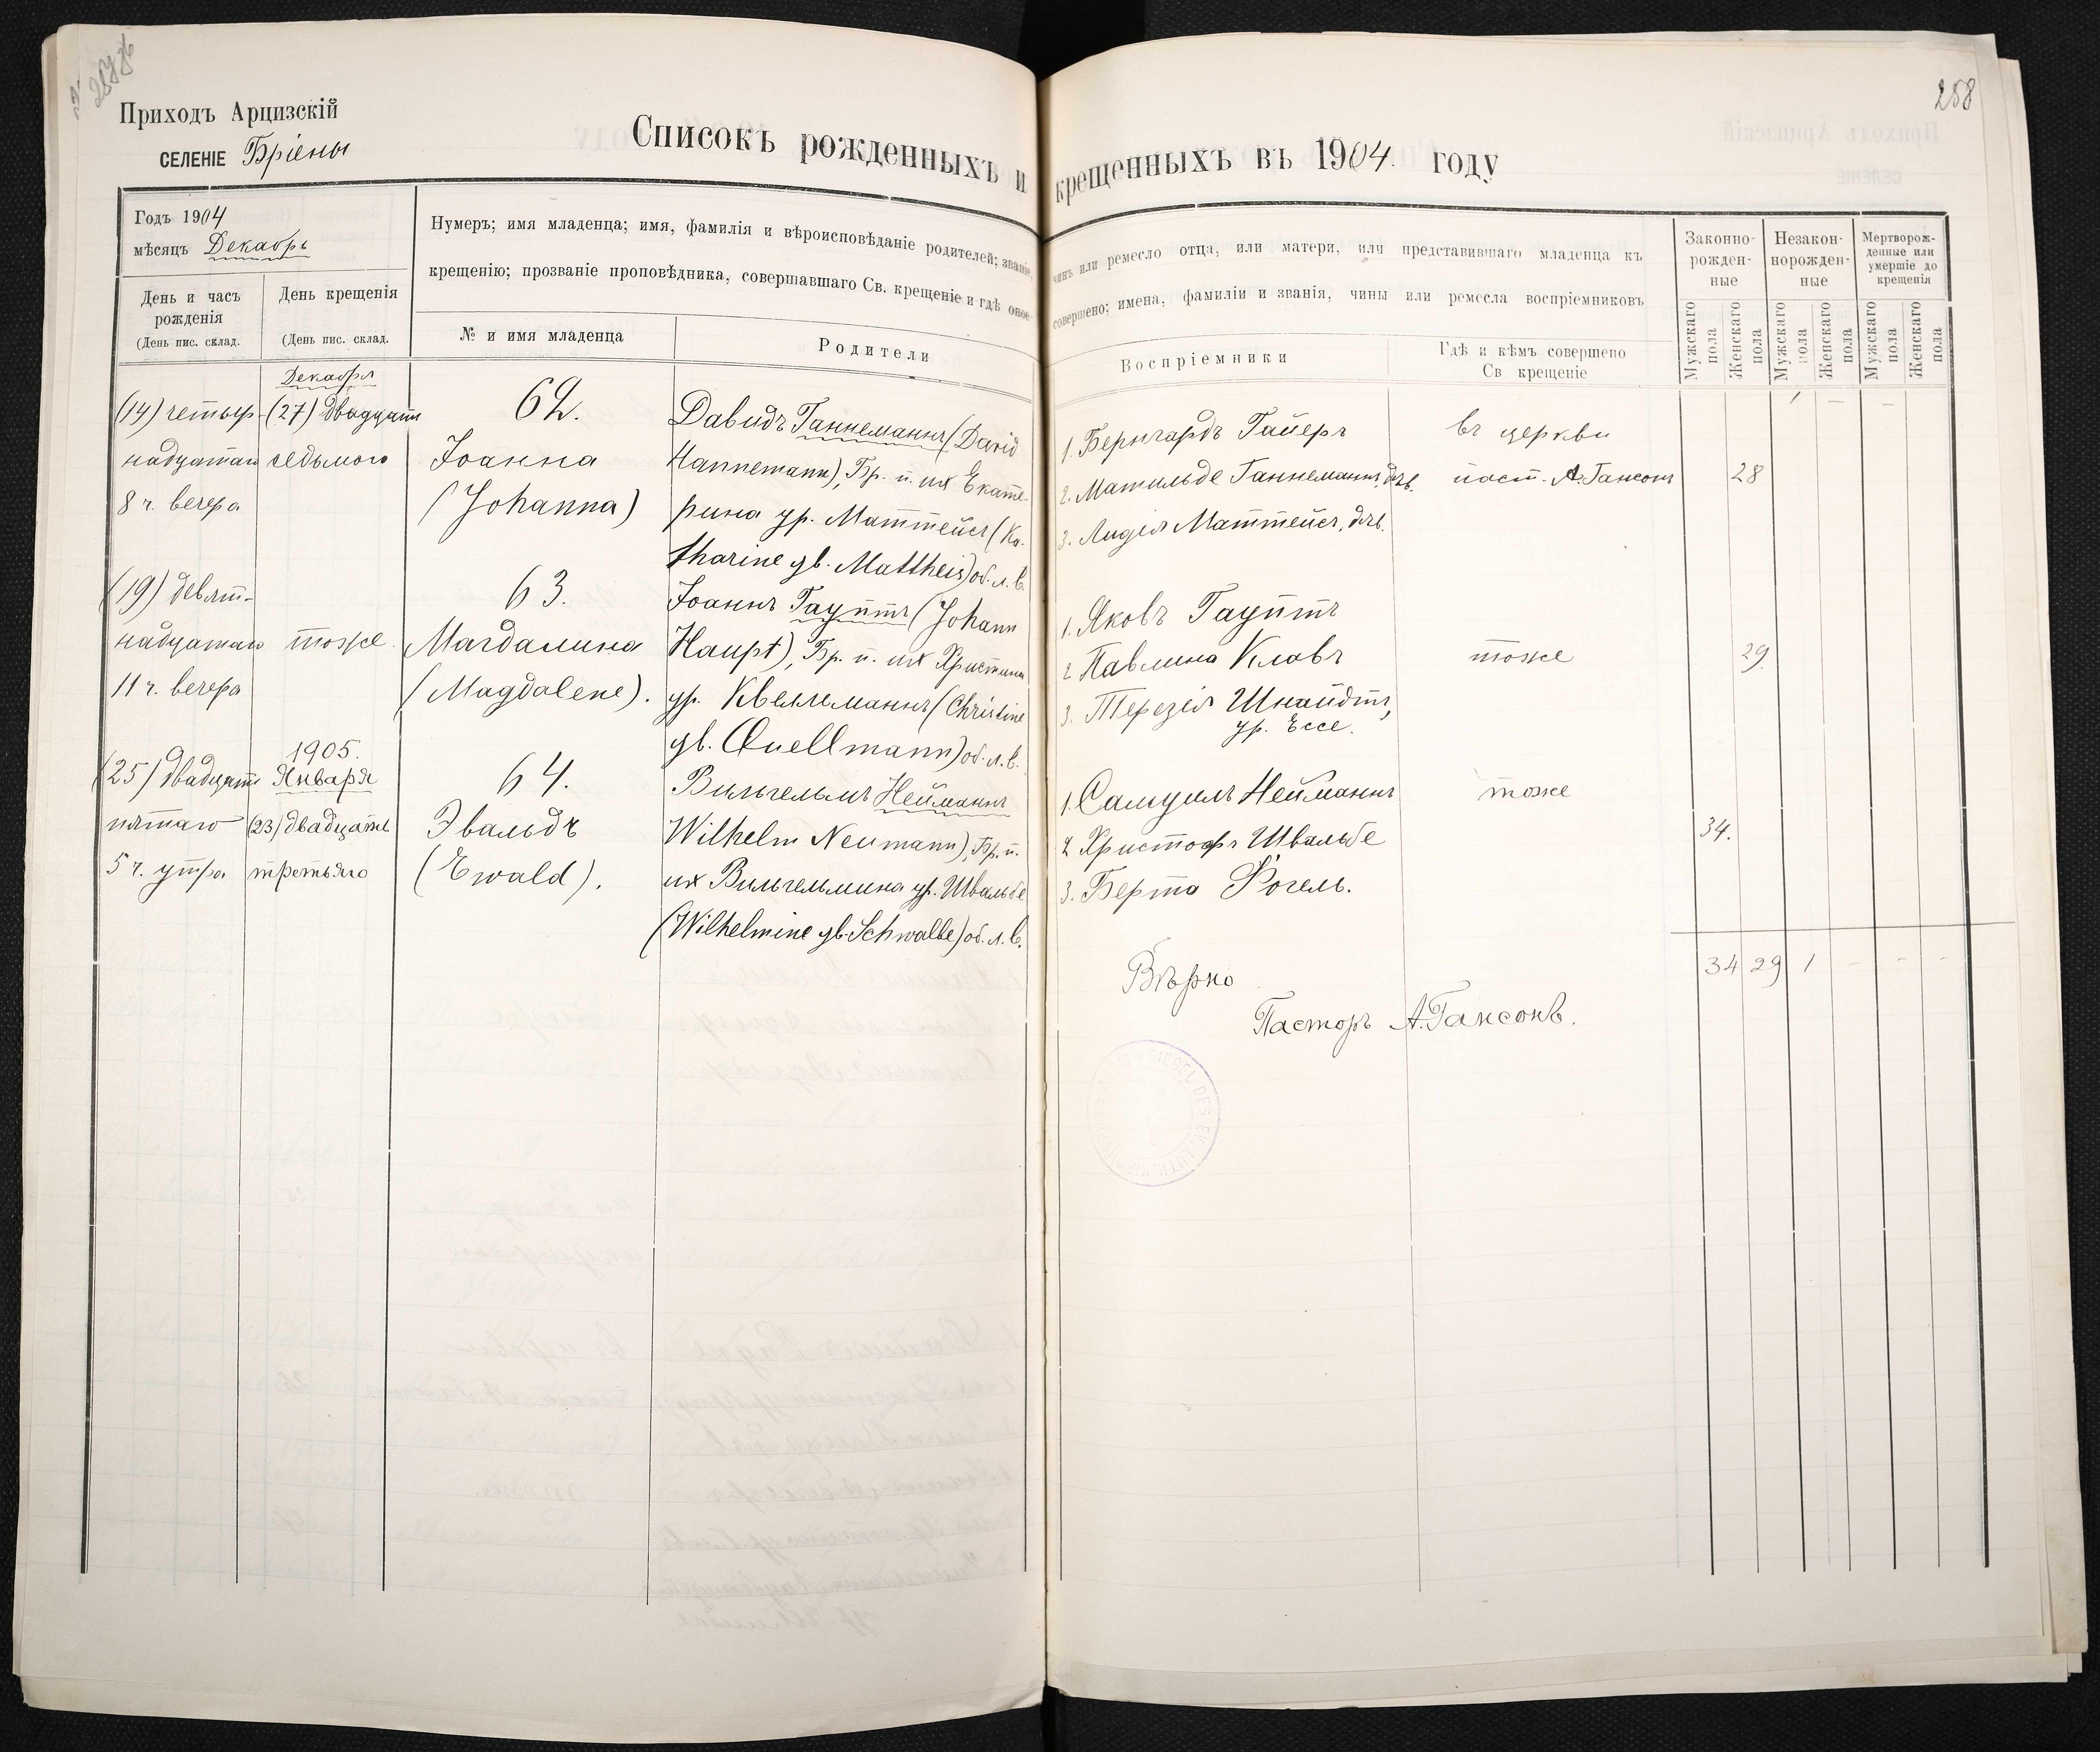 Приходъ Арцизскій
СЕЛЕНІЕ Бріены
Списокъ рожденныхъ и крещенныхъ въ 1904. году
258
Годъ 1904
мѣсяцъ Декабрь
День и часъ рожденія
(День пис. склад.
День крещенія
(День пис. склад.
Нумеръ; имя младенца; имя, фамилія и вѣроисповѣданіе родителей; званіе,
чинъ или ремесло отца, или матери, или представившаго младенца къ
крещенію; прозваніе проповѣдника, совершавшаго Св. крещеніе и гдѣ оное
совершено; имена, фамиліи и званія, чины или ремесла воспріемниковъ
№ и имя младенца
Родители
Воспріемники
Гдѣ и кѣмъ совершено
Св крещеніе
Законно-
рожден-
ные
Незакон-
норожден-
ные
Мертворож-
денные или
умершіе до
крещенія
Мужскаго пола
Женскаго пола
Мужскаго пола
Женскаго пола
Мужскаго пола
Женскаго пола
Декабря
(14) четыр-
надцатаго
8 ч. вечера
(27) двадцать
седьмого
62.
Іоанна
(Johanna)
Давидъ Ганнеманнъ (David
Hannemann), Бр. п. их Екате-
рина ур. Маттейсъ (Ka-
tharine gb. Mattheis) об. л. в.
1. Бернгардъ Гайеръ
2. Матильде Ганнеманнъ, дѣв.
3. Лидія Маттейсъ, дѣв.
въ церкви
паст. А. Гансонъ
28
1 — —
(19) девят-
надцатаго
11 ч. вечера
тоже
63.
Магдалина
(Magdalene).
Іоаннъ Гауптъ (Johann
Haupt), Бр. п. их Христина
ур. Квеллманнъ (Christine
gb. Quellmann) об. л. в.
1. Яковъ Гауптъ
2 Павлина Клавъ
3. Терезія Шнайдтъ,
ур. Ессе.
тоже
29.
(25) двадцать
пятаго
5 ч. утра
1905.
Января
(23) двадцать
третьяго
64.
Эвальдъ
(Ewald).
Вильгельмъ Нейманнъ
Wilhelm Neumann), Бр. п.
их Вильгельмина ур. Швальбе
(Wilhelmine gb. Schwalbe) об. л. в.
1. Самуилъ Нейманнъ
2 Христофъ Швальбе
3. Берта Фогель.
тоже
34.
34 29 1 — - -
Вѣрно
Пасторъ А. Гансонъ.